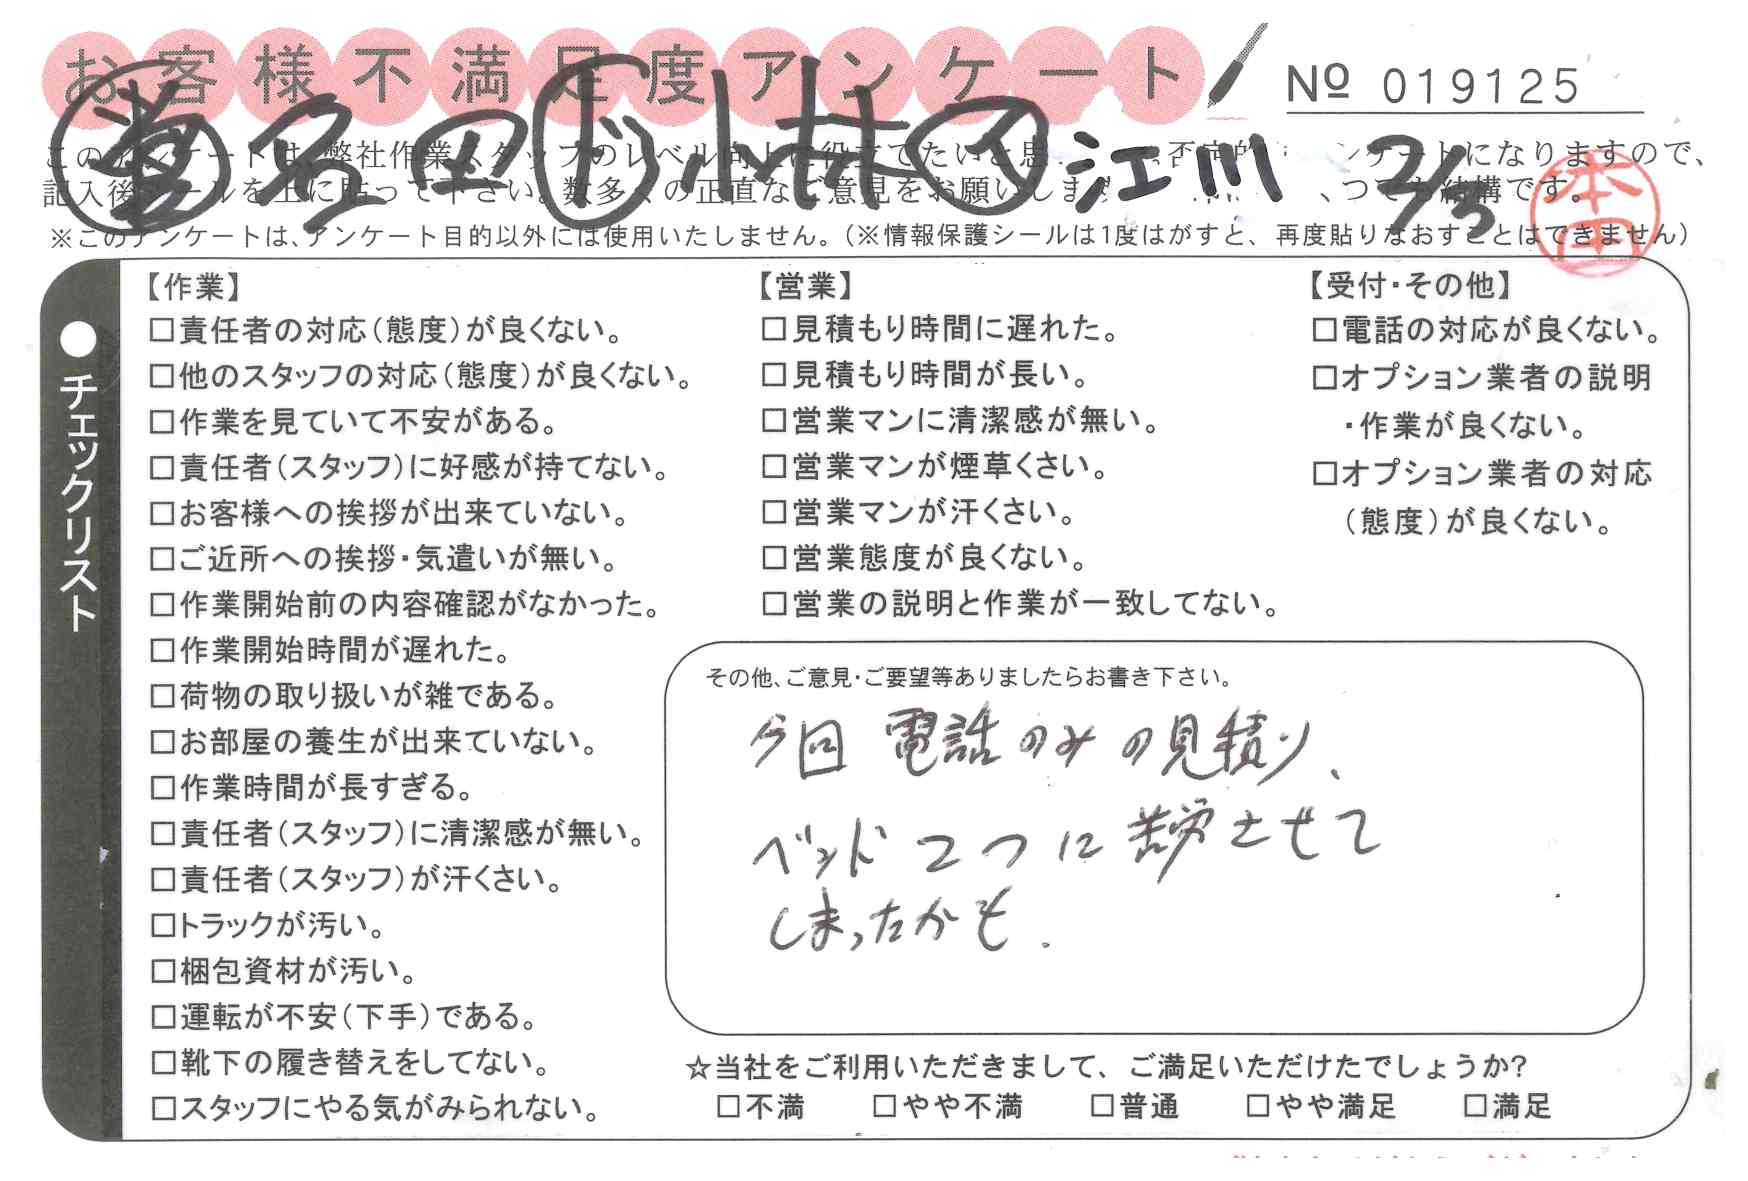 お客様不満足度アンケート
№ 019125
営 名田 ド 小林 ス 江川 2/3
このアンケートは、弊社作業スタッフのレベル向上に役立てたいと思 否定的 ンケートになりますので、
記入後シールを上に貼って下さい。数多くの正直なご意見をお願いしま 、つでも結構です。
※このアンケートは、アンケート目的以外には使用いたしません。（※情報保護シールは1度はがすと、再度貼りなおすことはできません）
本田
●チェックリスト
【作業】
□責任者の対応（態度）が良くない。
□他のスタッフの対応（態度）が良くない。
□作業を見ていて不安がある。
□責任者（スタッフ）に好感が持てない。
□お客様への挨拶が出来ていない。
□ご近所への挨拶・気遣いが無い。
□作業開始前の内容確認がなかった。
□作業開始時間が遅れた。
□荷物の取り扱いが雑である。
□お部屋の養生が出来ていない。
□作業時間が長すぎる。
□責任者（スタッフ）に清潔感が無い。
□責任者（スタッフ）が汗くさい。
□トラックが汚い。
□梱包資材が汚い。
□運転が不安（下手）である。
□靴下の履き替えをしてない。
□スタッフにやる気がみられない。
【営業】
□見積もり時間に遅れた。
□見積もり時間が長い。
□営業マンに清潔感が無い。
□営業マンが煙草くさい。
□営業マンが汗くさい。
□営業態度が良くない。
□営業の説明と作業が一致してない。
【受付・その他】
□電話の対応が良くない。
□オプション業者の説明
・作業が良くない。
□オプション業者の対応
（態度）が良くない。
その他、ご意見・ご要望等ありましたらお書き下さい。
今回 電話のみの見積り、
ベッド2つに苦労させて
しまったかも.
☆当社をご利用いただきまして、ご満足いただけたでしょうか?
□不満 □やや不満 □普通 □やや満足 □満足